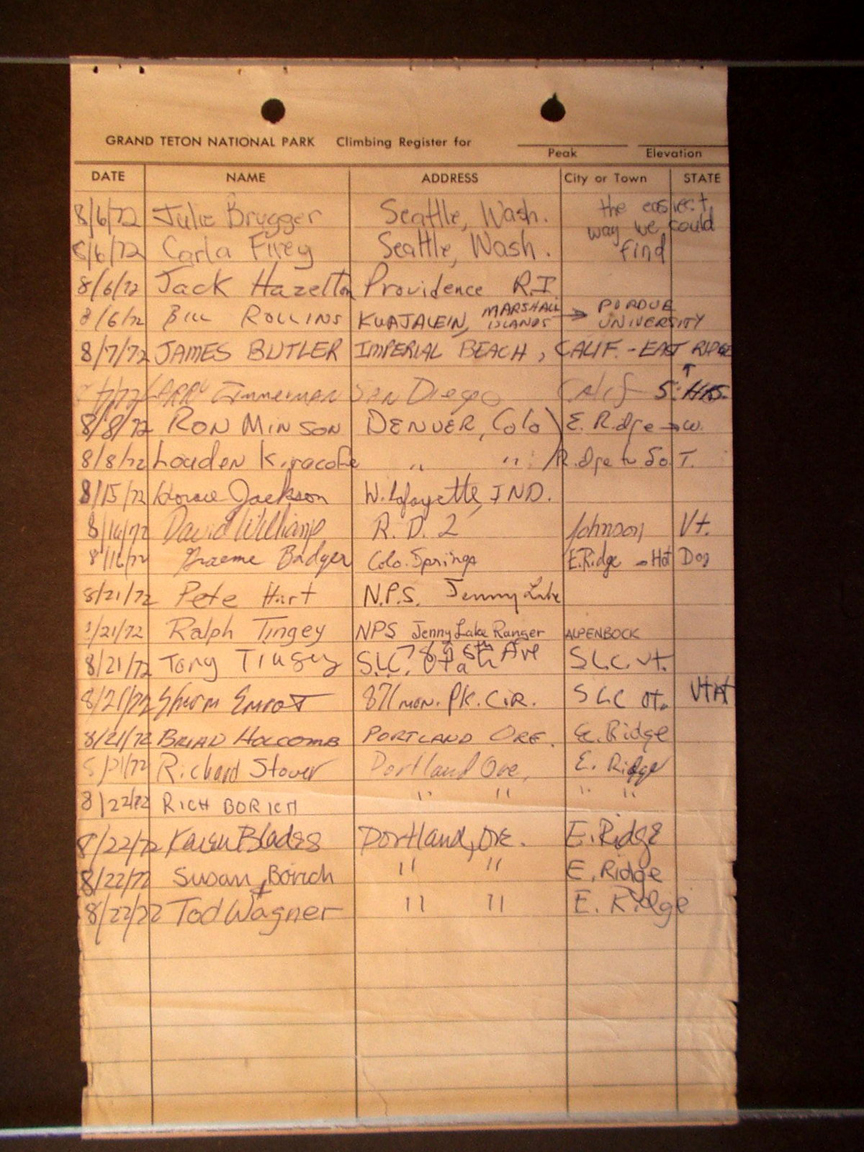 GRAND TETON NATIONAL PARK Climbing Register for
Peak Elevation
DATE NAME ADDRESS City or Town STATE
8/6/72 Julie Brugger Seattle, Wash. the easiest
way we could
8/6/72 Carla Firey Seattle, Wash. find
8/6/72 Jack Hazelton Providence R.I
8/6/72 BILL ROLLINS KWAJALEIN, MARSHALL ISLANDS → PURDUE UNIVERSITY
8/7/72 JAMES BUTLER IMPERIAL BEACH, CALIF. - EAST RIDGE
Zimmerman San Diego Calif 5 HRS.
8/8/72 RON MINSON DENVER, Colo) E. Ridge → W.
8/8/72 Louden Kiracofe " " Ridge to So. T.
8/15/72 Howie Jackson W. Lafayette, IND.
8/16/72 David Williams R.D. 2 Johnson Vt.
8/16/72 Graeme Badger Colo. Springs E.Ridge → Hot Dog
8/21/72 Pete Hart N.P.S. Jenny Lake
8/21/72 Ralph Tingey NPS Jenny Lake Ranger ALPENBOCK
8/21/72 Tony Tingey S.L.C. Utah Ave S.L.C. Ut.
8/21/72 871 MON. PK. CIR. SLC Ut. UtAH
8/21/72 BRIAN HOLCOMB PORTLAND ORE. E. Ridge
8/21/72 Richard Stover Portland Ore. E. Ridge
8/22/72 RICH BORICH " " " "
8/22/72 Karen Blades Portland, Ore. E. Ridge
8/22/72 Susan Borich " " E. Ridge
8/22/72 Tod Wagner " " E. Ridge